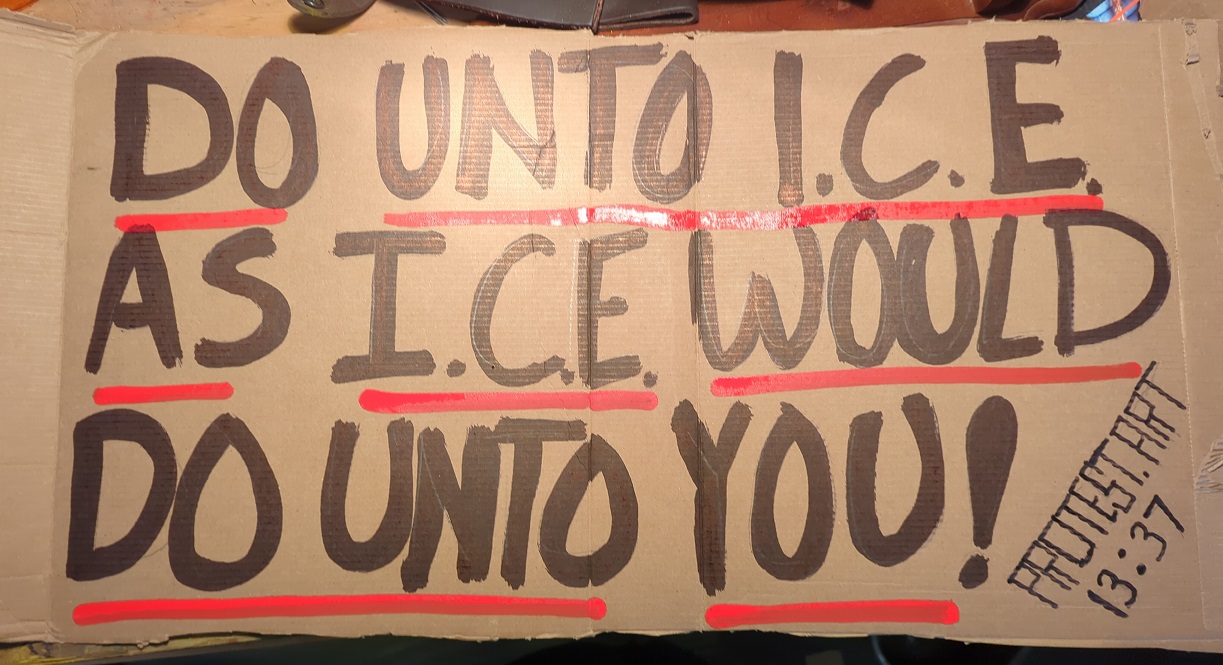 DO UNTO I.C.E.
AS I.C.E. WOULD
DO UNTO YOU!
PROTEST.ART
13:37